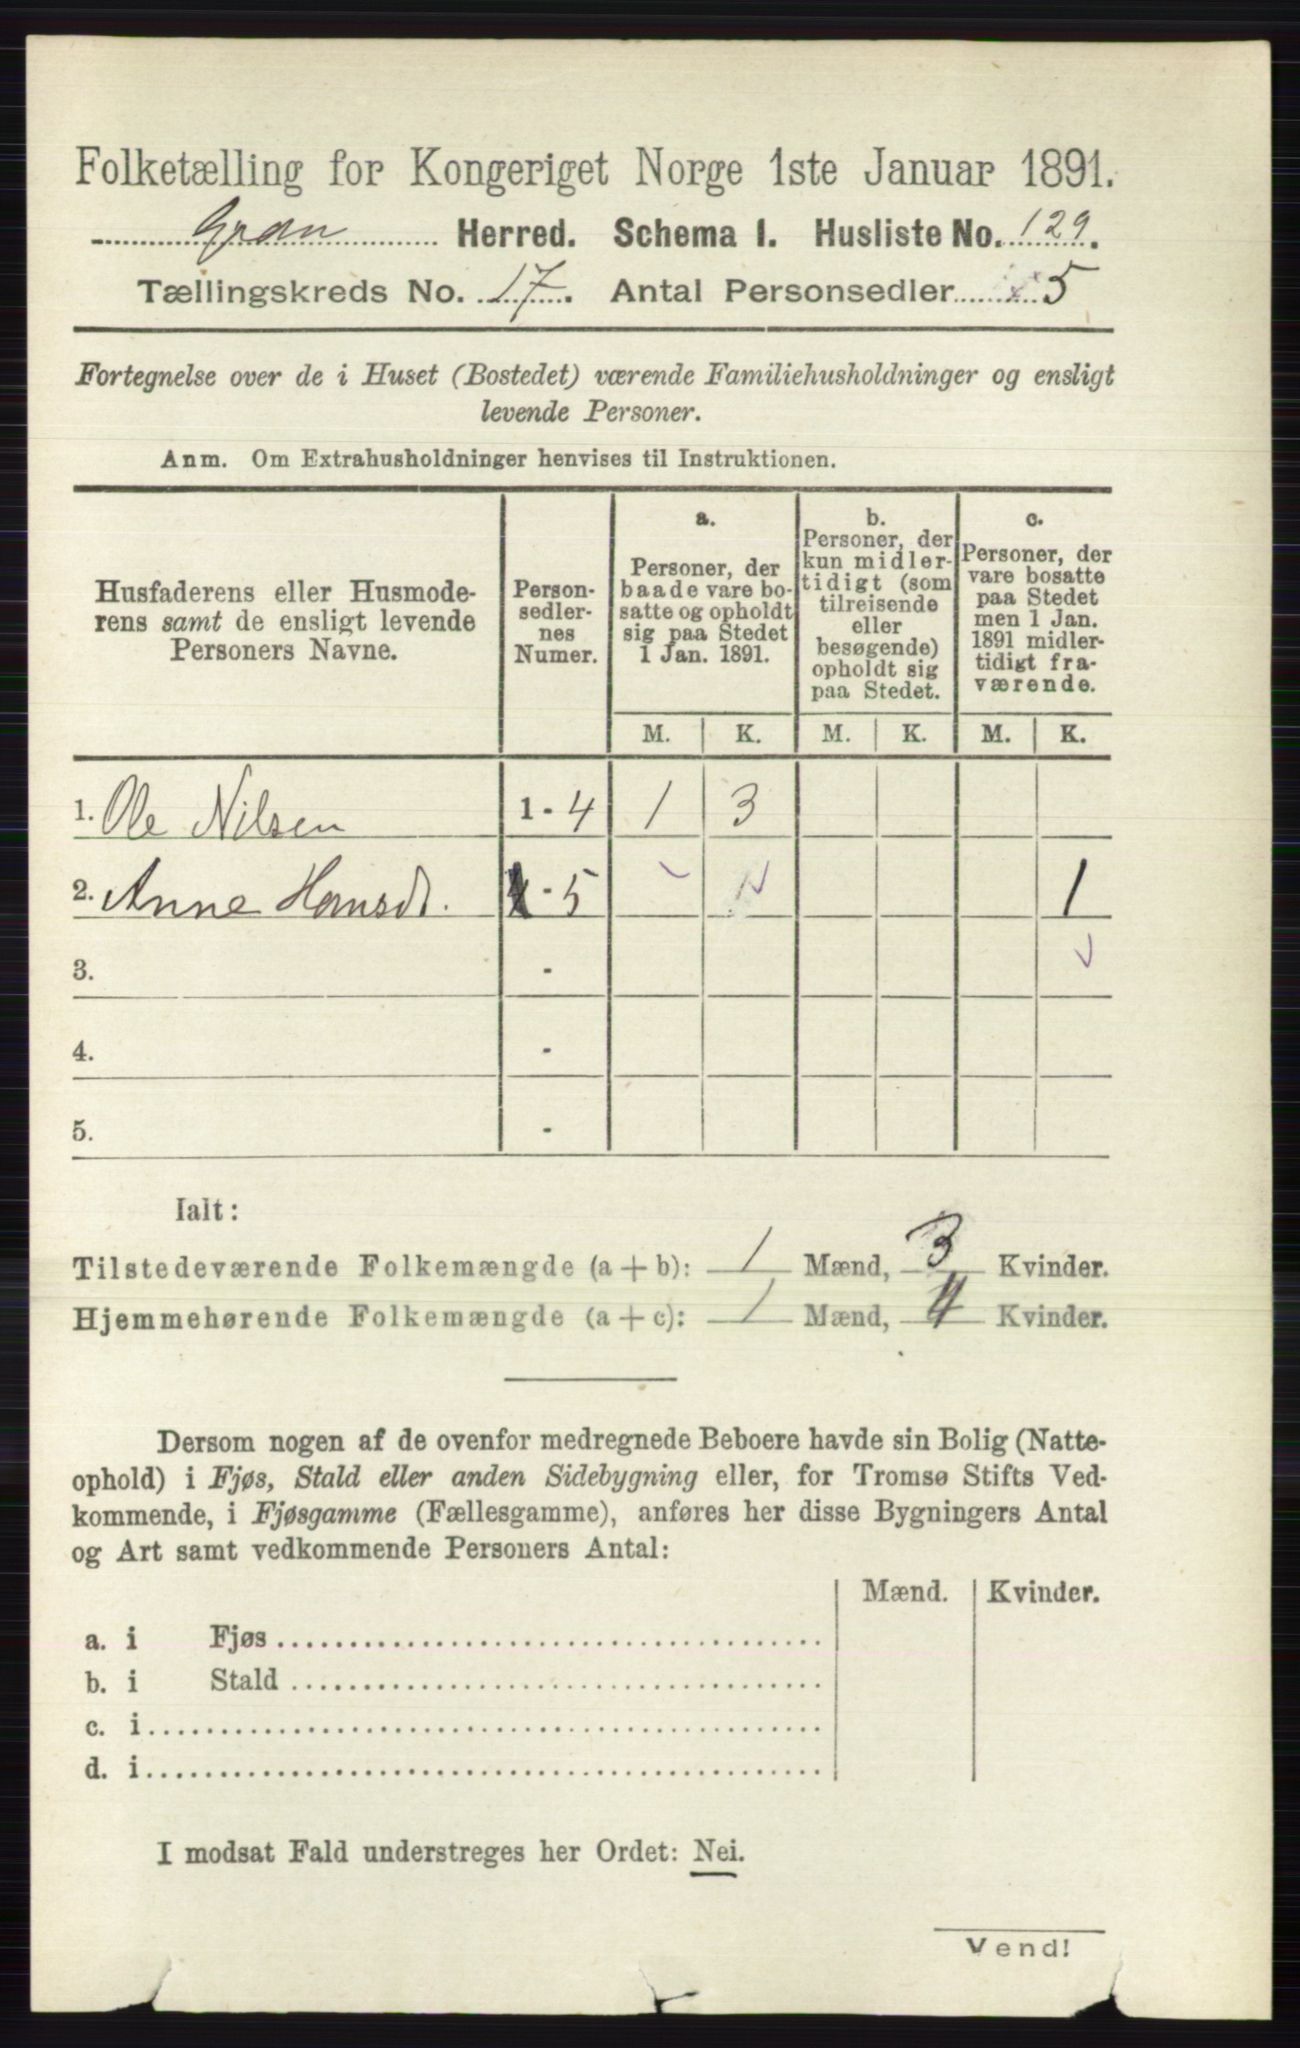 Folketælling for Kongeriget Norge 1ste Januar 1891.
Gran Herred. Schema I. Husliste No. 129.
Tællingskreds No. 17. Antal Personsedler 5
Fortegnelse over de i Huset (Bostedet) værende Familiehusholdninger og ensligt
levende Personer.
Anm. Om Extrahusholdninger henvises til Instruktionen.
Husfaderens eller Husmode-
rens samt de ensligt levende
Personers Navne.
Person-
sedler-
nes
Numer.
a.
Personer, der
baade vare bo-
satte og opholdt
sig paa Stedet
1 Jan. 1891.
b.
Personer, der
kun midler-
tidigt (som
tilreisende
eller
besøgende)
opholdt sig
paa Stedet.
c.
Personer, der
vare bosatte
paa Stedet
men 1 Jan.
1891 midler-
tidigt fra-
værende.
M. K. M. K. M. K.
1. Ole Nilsen 1 - 4 1 3
2. Anne Hansd. - 5 1
3. -
4. -
5. -
Ialt:
Tilstedeværende Folkemængde (a + b): 1 Mænd, 3 Kvinder.
Hjemmehørende Folkemængde (a + c): 1 Mænd, 4 Kvinder.
Dersom nogen af de ovenfor medregnede Beboere havde sin Bolig (Natte-
ophold) i Fjøs, Stald eller anden Sidebygning eller, for Tromsø Stifts Ved-
kommende, i Fjøsgamme (Fællesgamme), anføres her disse Bygningers Antal
og Art samt vedkommende Personers Antal:
Mænd. Kvinder.
a. i Fjøs
b. i Stald
c. i
d. i
I modsat Fald understreges her Ordet: Nei.
Vend!